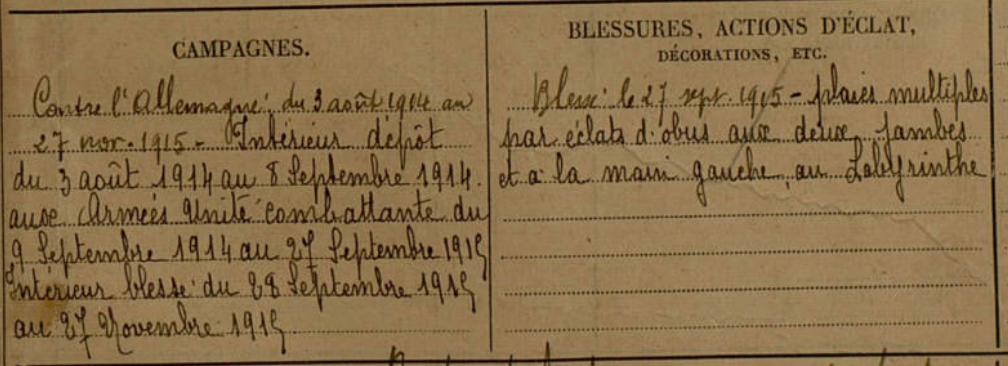 CAMPAGNES.
Contre l'Allemagne: du 3 août 1914 au
27 nov. 1915 - Intérieur dépôt
du 3 août 1914 au 8 Septembre 1914.
aux Armées Unité combattante du
9 Septembre 1914 au 27 Septembre 1915
Intérieur blessé du 28 Septembre 1915
au 27 Novembre 1915
BLESSURES, ACTIONS D'ÉCLAT,
DÉCORATIONS, ETC.
Blessé le 27 sept. 1915 - plaies multiples
par éclats d'obus aux deux jambes
et a la main gauche, au Labyrinthe